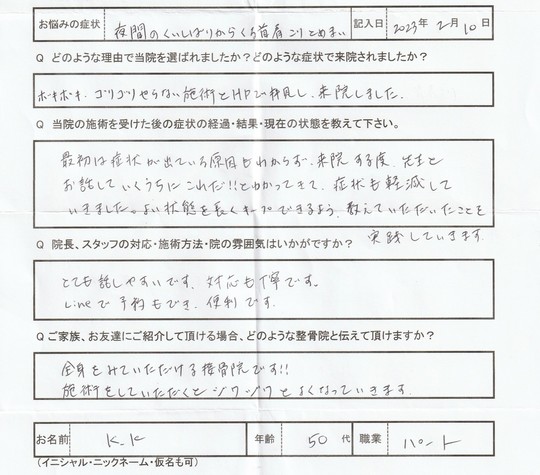 お悩みの症状 夜間のくいしばりからくる首肩こりとめまい 記入日 2023年 2月 10日
Q どのような理由で当院を選ばれましたか？どのような症状で来院されましたか？
ボキボキ、ゴリゴリやらない施術とHPで拝見し、来院しました。
Q 当院の施術を受けた後の症状の経過・結果・現在の状態を教えて下さい。
最初は症状が出ている原因もわからず、来院する度、先生と
お話していくうちにこれだ!!とわかってきて、症状も軽減して
いきました。よい状態を長くキープできるよう、教えていただいたことを
実践していきます。
Q 院長、スタッフの対応・施術方法・院の雰囲気はいかがですか？
とても話しやすいです。対応も丁寧です。
Lineで予約もでき、便利です。
Q ご家族、お友達にご紹介して頂ける場合、どのような整骨院と伝えて頂けますか？
全身をみていただける接骨院です!!
施術をしていただくとジワジワとよくなっていきます。
お名前 K.K 年齢 50代 職業 パート
(イニシャル・ニックネーム・仮名も可)